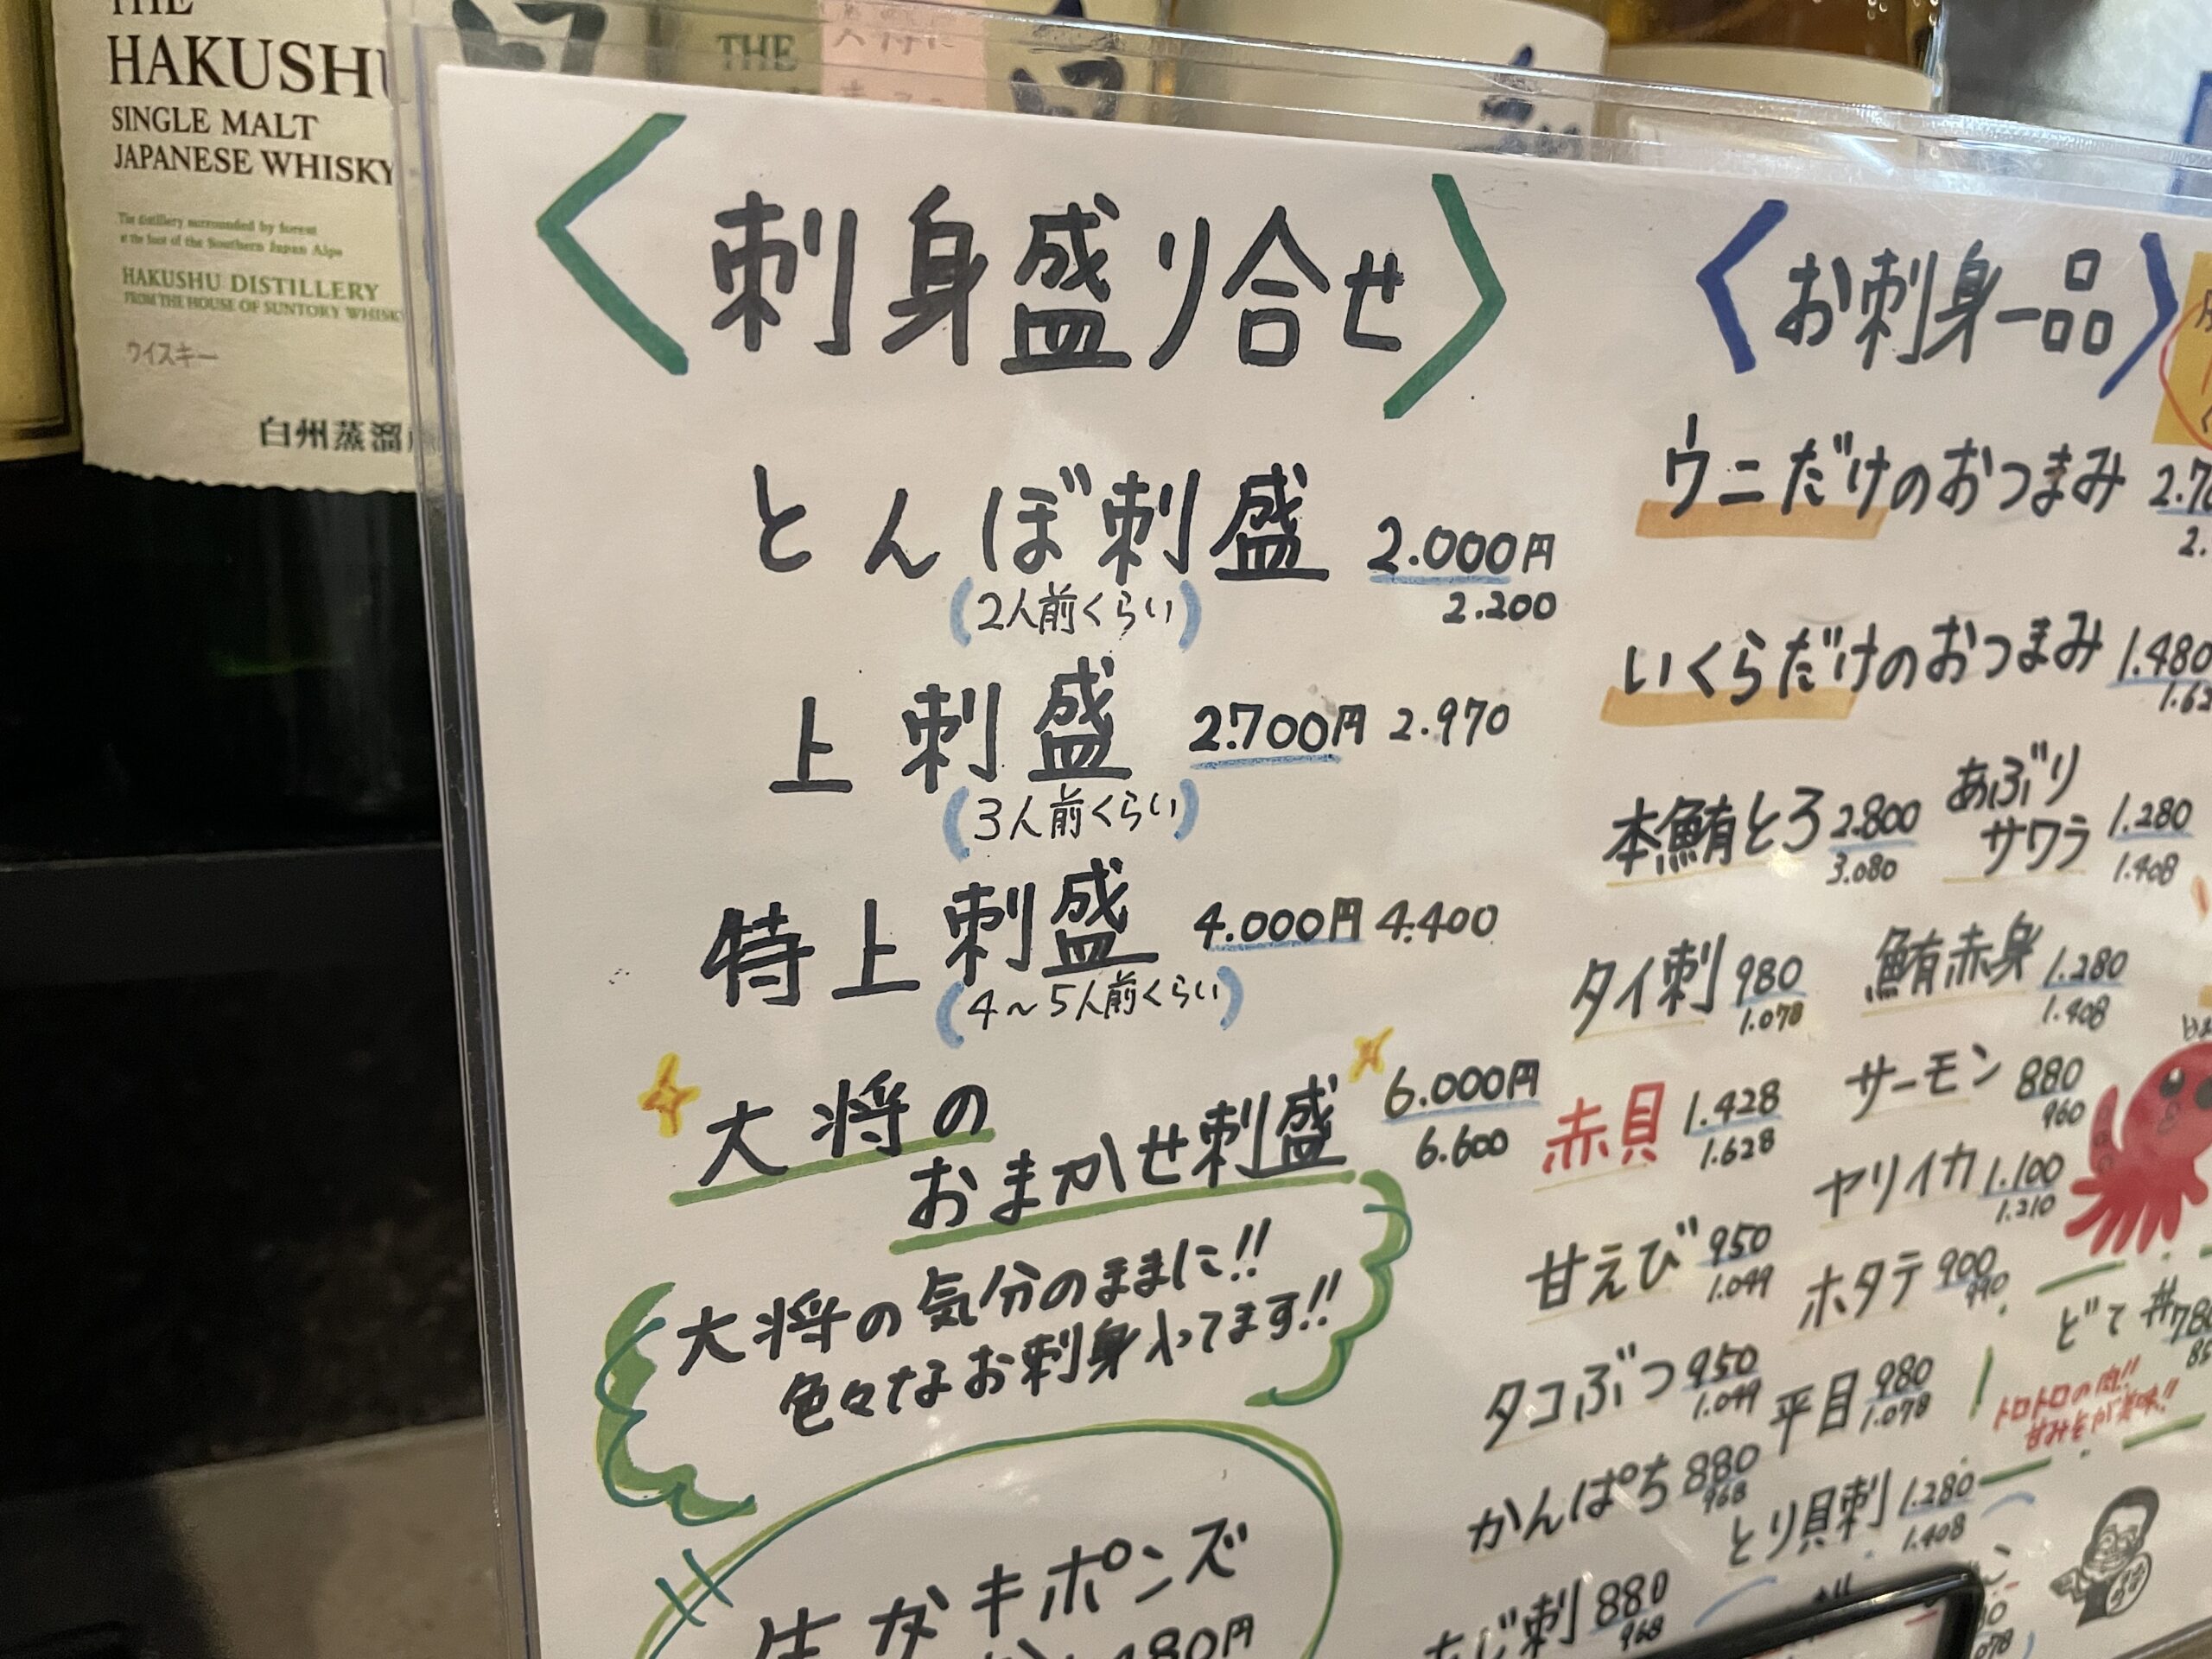 THE
HAKUSHU
SINGLE MALT
JAPANESE WHISKY
The distillery surrounded by forest
at the foot of the Southern Japan Alps
HAKUSHU DISTILLERY
FROM THE HOUSE OF SUNTORY WHISKY
ウイスキー
白州蒸溜
THE
〈刺身盛り合せ〉
とんぼ刺盛 2.000円
2.200
(2人前くらい)
上刺盛 2.700円 2.970
(3人前くらい)
特上刺盛 4.000円 4.400
(4~5人前くらい)
大将の
おまかせ刺盛 6.000円
6.600
大将の気分のままに!!
色々なお刺身入ってます!!
生ガキポンズ
480円
〈お刺身一品〉
ウニだけのおつまみ
いくらだけのおつまみ 1.480
本鮪とろ 2.800
3.080
あぶり
サワラ 1.280
1.408
タイ刺 980
1.078
鮪赤身 1.280
1.408
赤貝 1.428
1.628
サーモン 880
960
甘えび 950
1.049
ヤリイカ 1.100
1.210
タコぶつ 950
1.049
ホタテ 900
990
かんぱち 880
968
平目 980
1.078
あじ刺 880
968
とり貝刺 1.280
1.408
どて
トロトロの肉!!
甘みそが美味!!